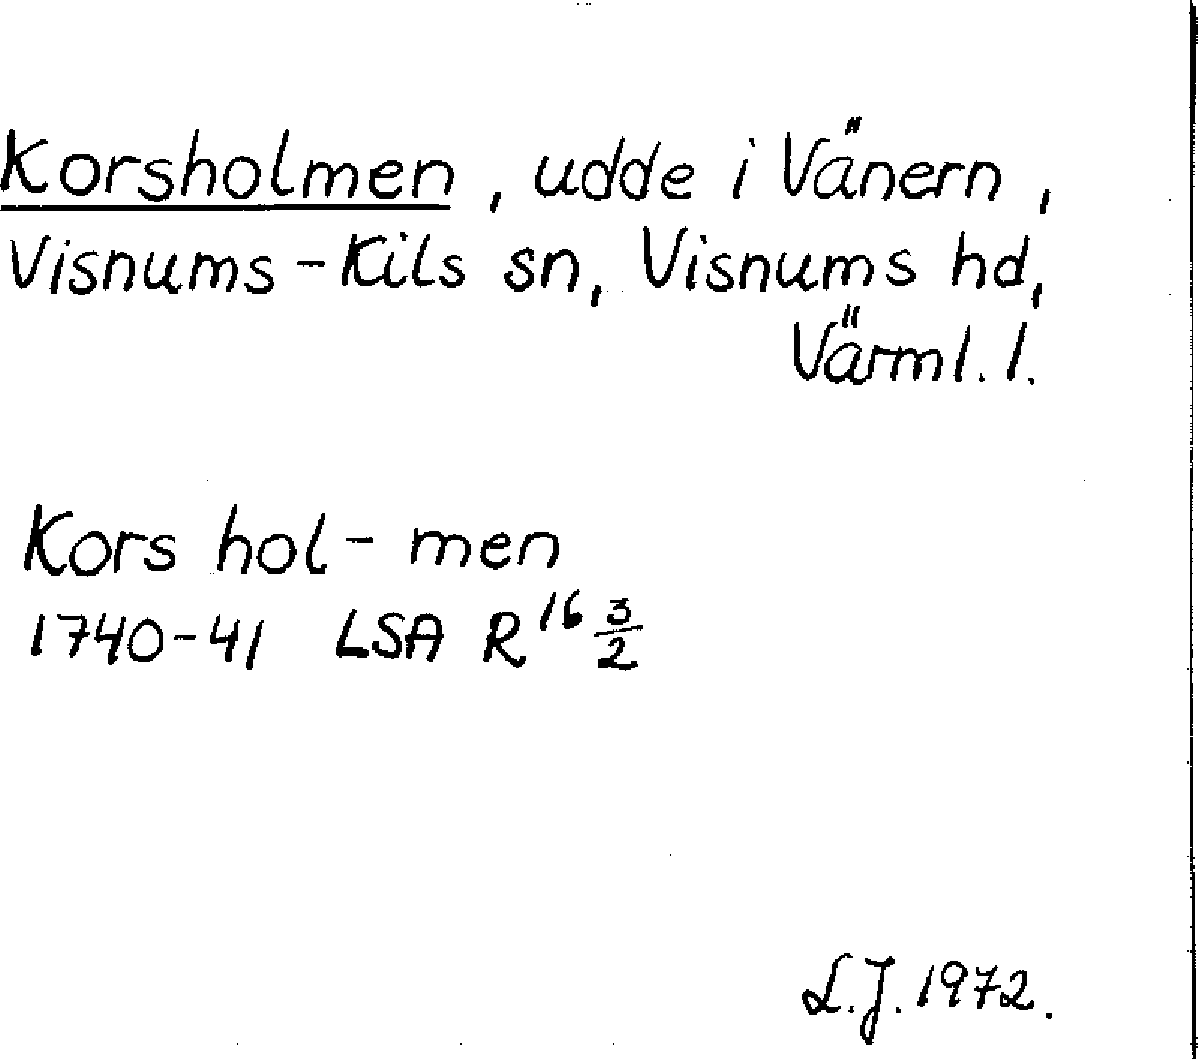 Korsholmen, udde i Vänern,
Visnums-Kils sn, Visnums hd,
Värml. l.
Kors hol- men
1740-41 LSA R 16 3/2
L.J. 1972.